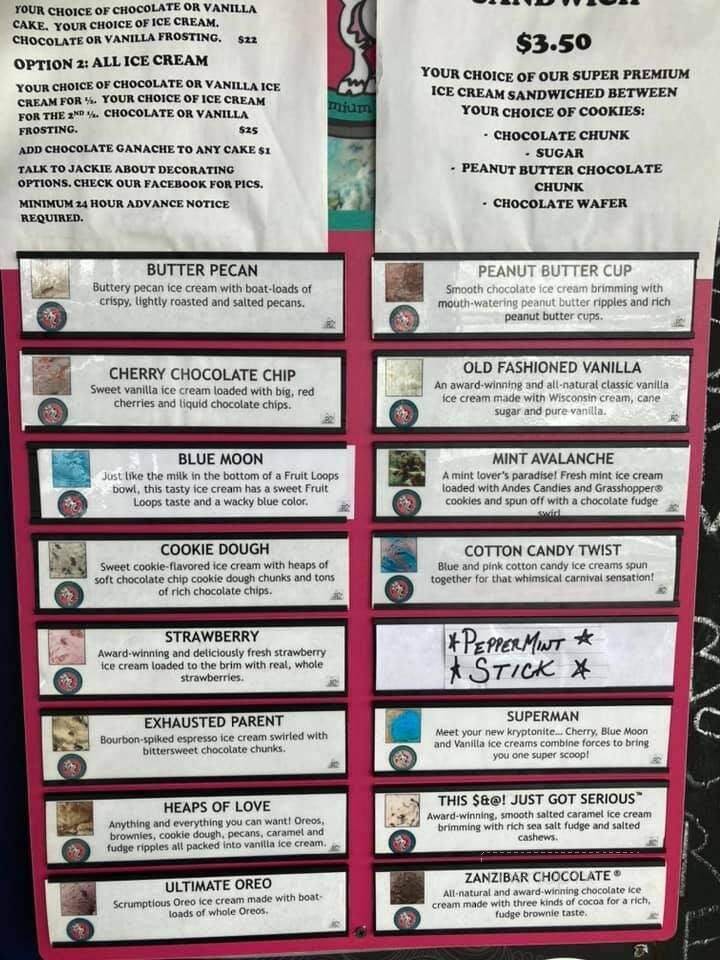 YOUR CHOICE OF CHOCOLATE OR VANILLA
CAKE. YOUR CHOICE OF ICE CREAM.
CHOCOLATE OR VANILLA FROSTING. $22
OPTION 2: ALL ICE CREAM
YOUR CHOICE OF CHOCOLATE OR VANILLA ICE
CREAM FOR ½. YOUR CHOICE OF ICE CREAM
FOR THE 2ND ½. CHOCOLATE OR VANILLA
FROSTING. $25
ADD CHOCOLATE GANACHE TO ANY CAKE $1
TALK TO JACKIE ABOUT DECORATING
OPTIONS. CHECK OUR FACEBOOK FOR PICS.
MINIMUM 24 HOUR ADVANCE NOTICE
REQUIRED.
mium
SANDWICH
$3.50
YOUR CHOICE OF OUR SUPER PREMIUM
ICE CREAM SANDWICHED BETWEEN
YOUR CHOICE OF COOKIES:
· CHOCOLATE CHUNK
· SUGAR
· PEANUT BUTTER CHOCOLATE
CHUNK
· CHOCOLATE WAFER
BUTTER PECAN
Buttery pecan ice cream with boat-loads of
crispy, lightly roasted and salted pecans.
CHERRY CHOCOLATE CHIP
Sweet vanilla ice cream loaded with big, red
cherries and liquid chocolate chips.
BLUE MOON
Just like the milk in the bottom of a Fruit Loops
bowl, this tasty ice cream has a sweet Fruit
Loops taste and a wacky blue color.
COOKIE DOUGH
Sweet cookie-flavored ice cream with heaps of
soft chocolate chip cookie dough chunks and tons
of rich chocolate chips.
STRAWBERRY
Award-winning and deliciously fresh strawberry
ice cream loaded to the brim with real, whole
strawberries.
EXHAUSTED PARENT
Bourbon-spiked espresso ice cream swirled with
bittersweet chocolate chunks.
HEAPS OF LOVE
Anything and everything you can want! Oreos,
brownies, cookie dough, pecans, caramel and
fudge ripples all packed into vanilla ice cream.
ULTIMATE OREO
Scrumptious Oreo ice cream made with boat-
loads of whole Oreos.
PEANUT BUTTER CUP
Smooth chocolate ice cream brimming with
mouth-watering peanut butter ripples and rich
peanut butter cups.
OLD FASHIONED VANILLA
An award-winning and all-natural classic vanilla
ice cream made with Wisconsin cream, cane
sugar and pure vanilla.
MINT AVALANCHE
A mint lover's paradise! Fresh mint ice cream
loaded with Andes Candies and Grasshopper®
cookies and spun off with a chocolate fudge
swirl
COTTON CANDY TWIST
Blue and pink cotton candy ice creams spun
together for that whimsical carnival sensation!
* PEPPERMINT *
* STICK *
SUPERMAN
Meet your new kryptonite... Cherry, Blue Moon
and Vanilla ice creams combine forces to bring
you one super scoop!
THIS $&@! JUST GOT SERIOUS™
Award-winning, smooth salted caramel ice cream
brimming with rich sea salt fudge and salted
cashews.
ZANZIBAR CHOCOLATE®
All-natural and award-winning chocolate ice
cream made with three kinds of cocoa for a rich,
fudge brownie taste.